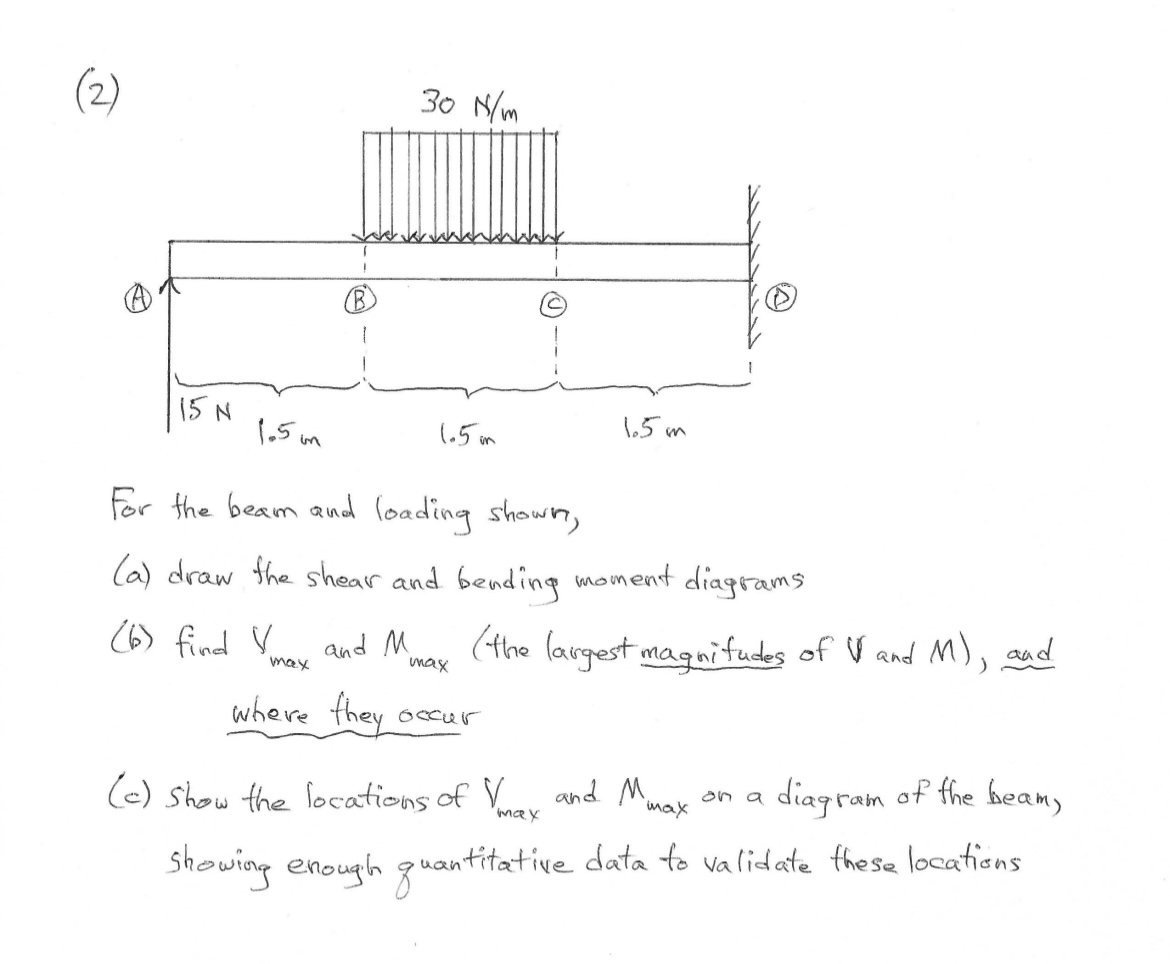 (2)
30 N/m
A
B
C
D
15 N
1.5 m
1.5 m
1.5 m
For the beam and loading shown,
(a) draw the shear and bending moment diagrams
(b) find Vmax and Mmax (the largest magnitudes of V and M), and
where they occur
(c) show the locations of Vmax and Mmax on a diagram of the beam,
showing enough quantitative data to validate these locations